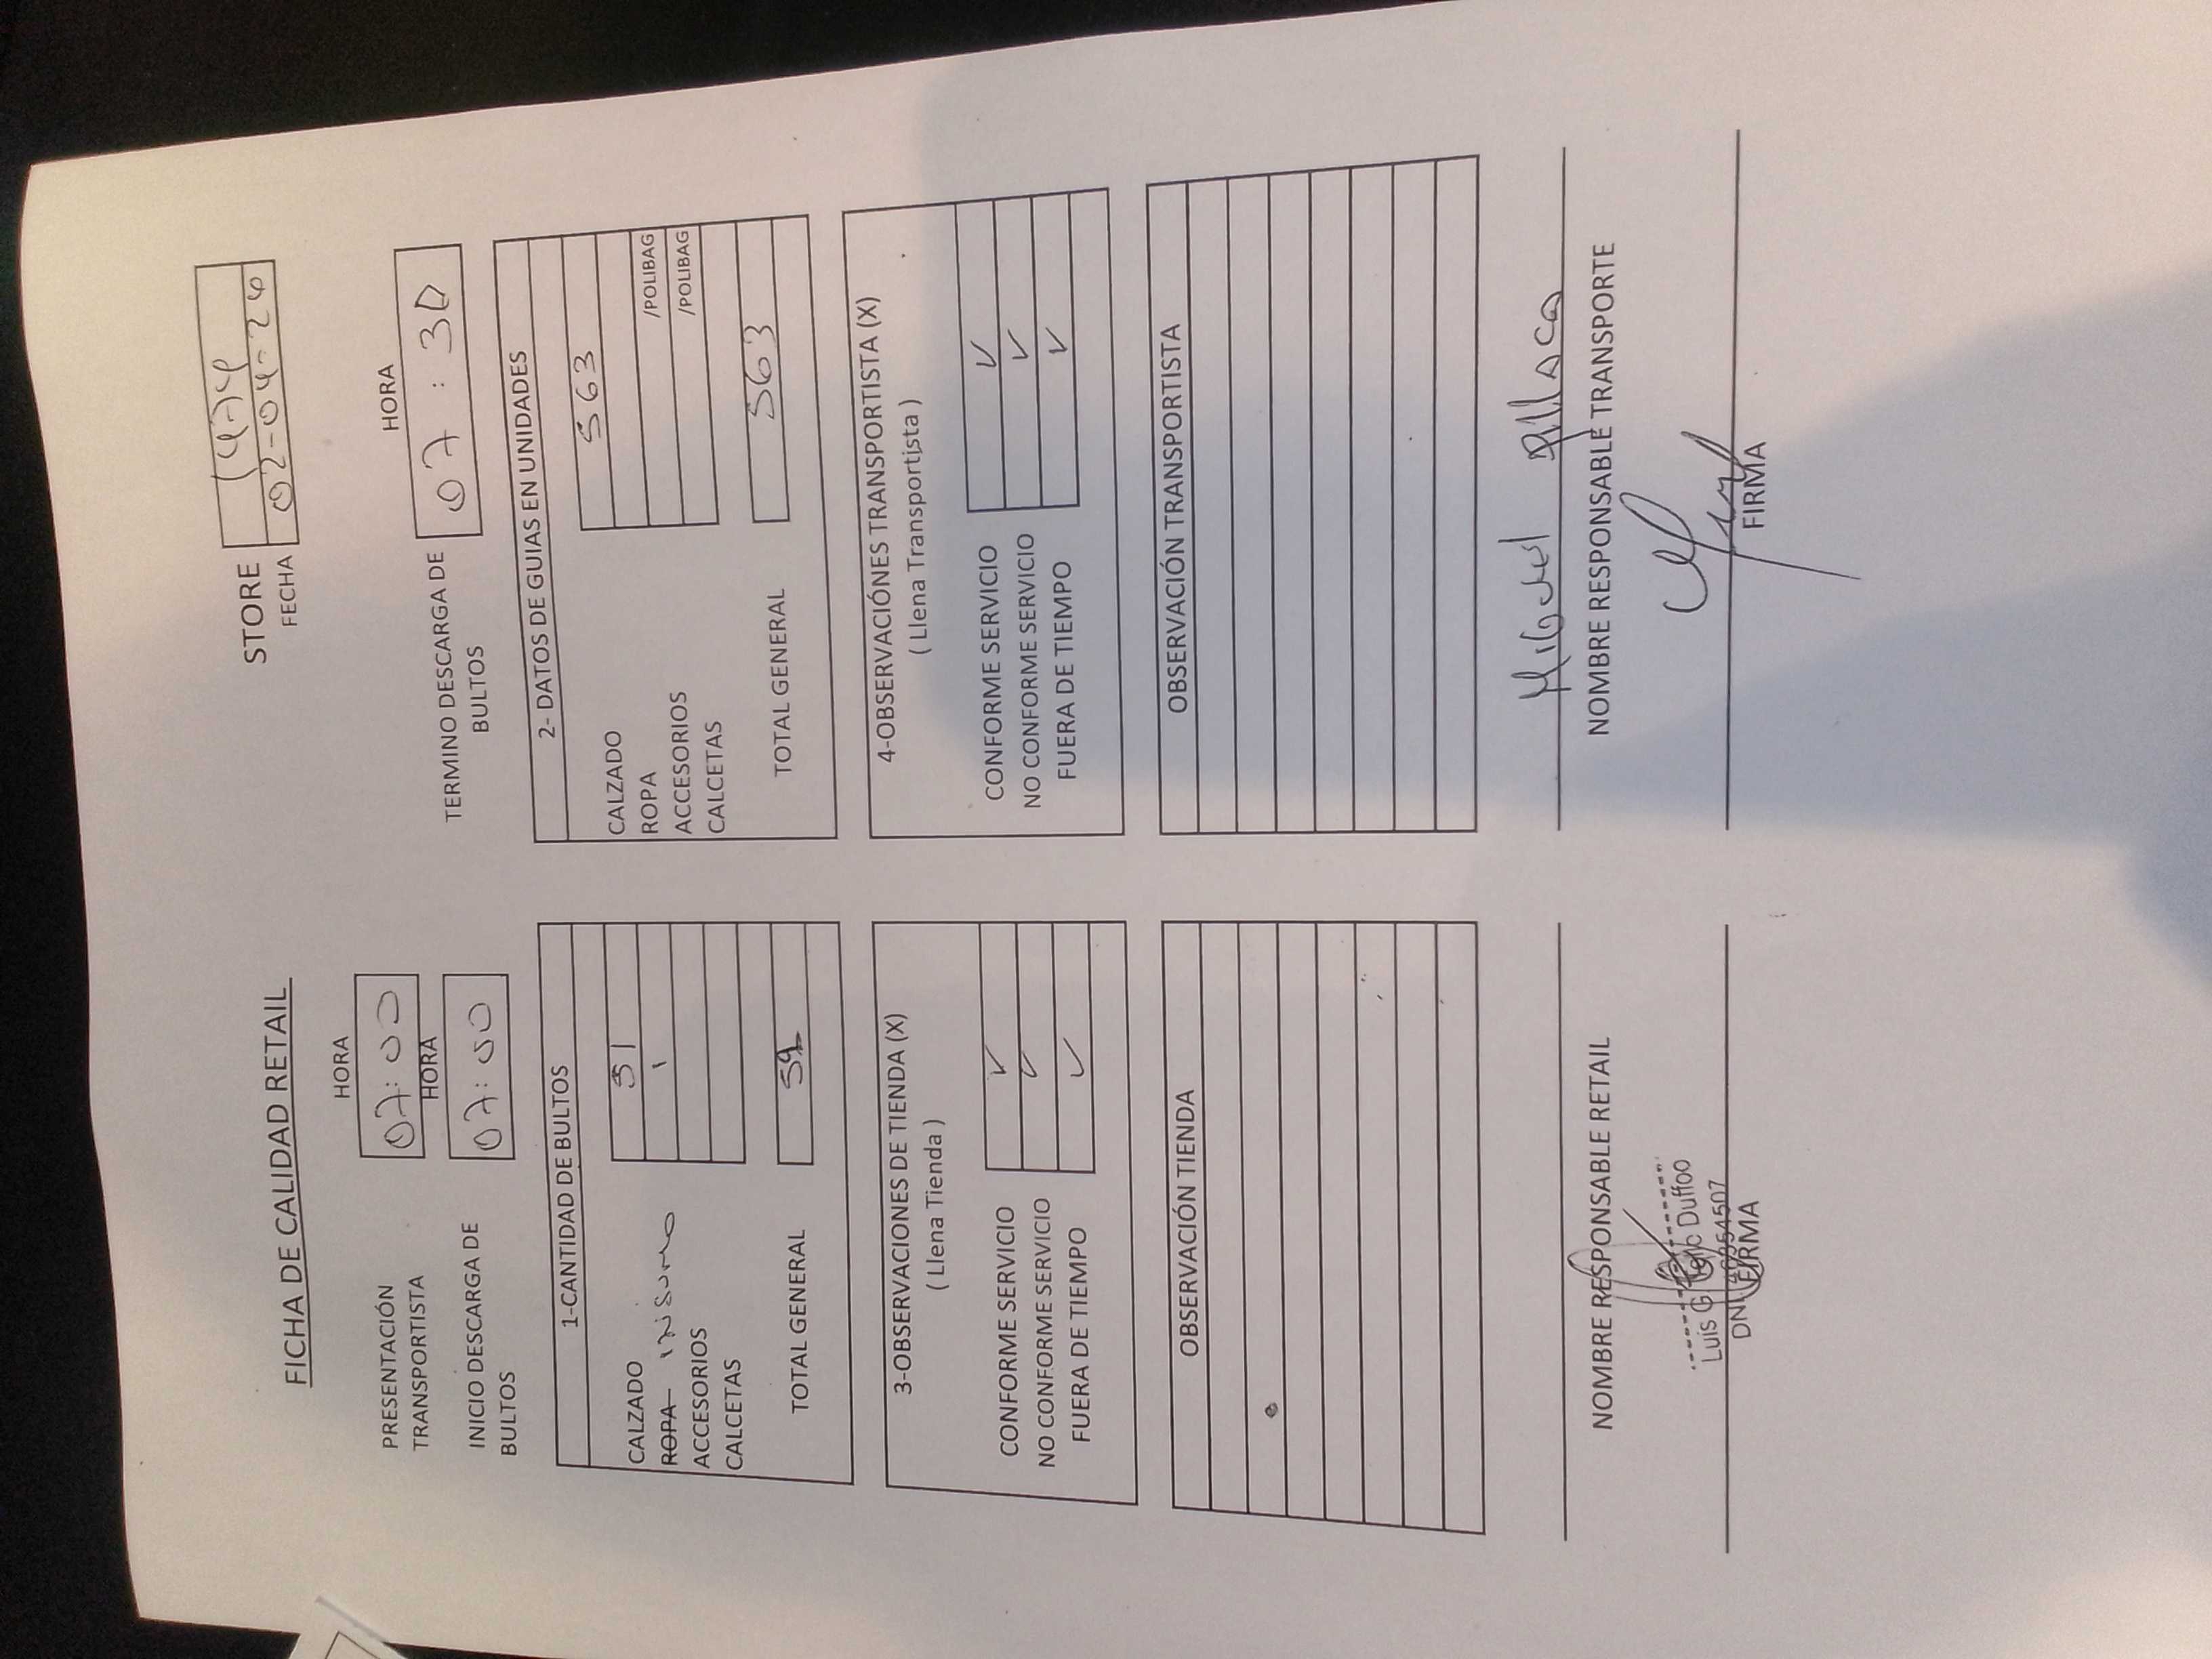 FICHA DE CALIDAD RETAIL
STORE
FECHA 02-04-24
HORA
PRESENTACIÓN TRANSPORTISTA 07:00
HORA
INICIO DESCARGA DE BULTOS 07:00
HORA
TERMINO DESCARGA DE BULTOS 07:30
1-CANTIDAD DE BULTOS
CALZADO 51
ROPA INSUMO 1
ACCESORIOS
CALCETAS
TOTAL GENERAL
2- DATOS DE GUIAS EN UNIDADES
CALZADO 563
ROPA /POLIBAG
ACCESORIOS /POLIBAG
CALCETAS
TOTAL GENERAL 563
3-OBSERVACIONES DE TIENDA (X)
( Llena Tienda )
CONFORME SERVICIO ✓
NO CONFORME SERVICIO ✓
FUERA DE TIEMPO ✓
4-OBSERVACIÓNES TRANSPORTISTA (X)
( Llena Transportista )
CONFORME SERVICIO ✓
NO CONFORME SERVICIO ✓
FUERA DE TIEMPO ✓
OBSERVACIÓN TIENDA
OBSERVACIÓN TRANSPORTISTA
NOMBRE RESPONSABLE RETAIL
Luis G Duffoo
DNI
FIRMA
Miguel
NOMBRE RESPONSABLE TRANSPORTE
FIRMA